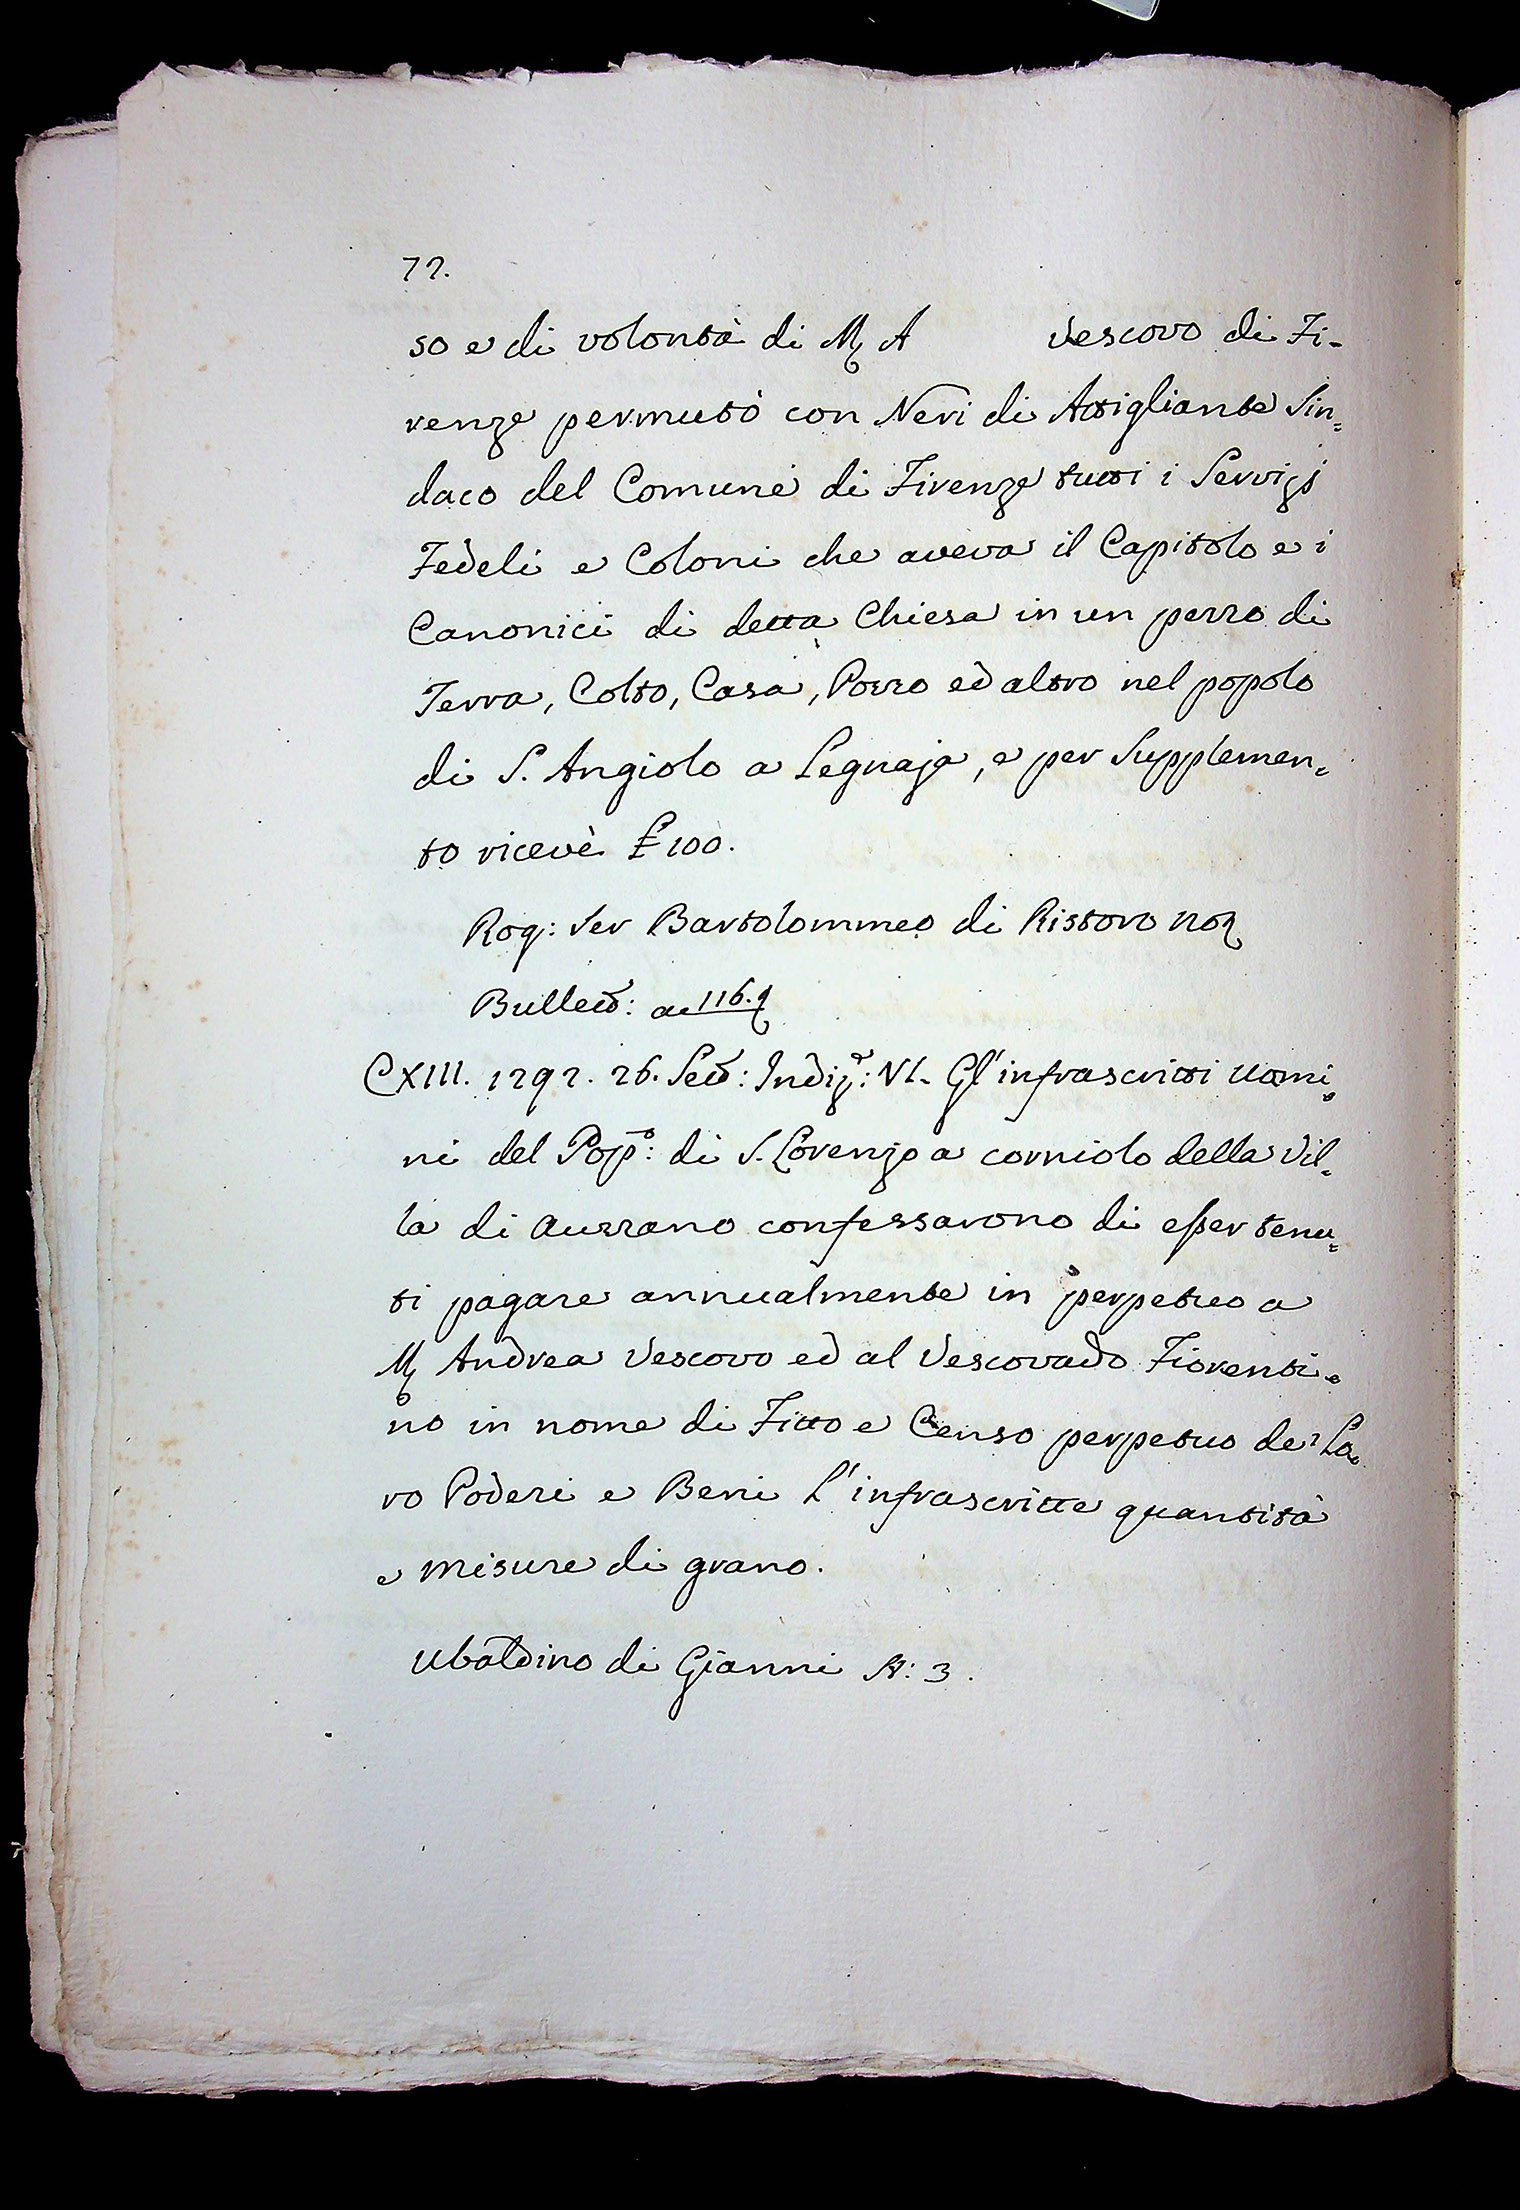 72.
so e di volontà di M. A Vescovo di Fi-
renze permutò con Neri di Attigliante Sin=
daco del Comune di Firenze tutti i Servizj
Fedeli e Coloni che aveva il Capitolo e i
Canonici di detta Chiesa in un pezzo di
Terra, Colto, Casa, Pozzo ed altro nel popolo
di S. Angiolo a Legnaja, e per Supplemen=
to ricevè £ 100.
Rog: Ser Bartolommeo di Ristoro not
Bullett: a 116.
CXIII. 1292. 26. Sett: Indiz.e: VI. Gl'infrascritti Uomi=
ni del Pop.o: di S. Lorenzo a corniolo della Vil=
la di Auzzano confessarono di esser tenu=
ti pagare annualmente in perpetuo a
M. Andrea Vescovo ed al Vescovado Fiorenti=
no in nome di Fitto e Censo perpetuo de' Lo=
ro Poderi e Beni L'infrascritte quantità
e Misure di grano.
Ubaldino di Gianni St: 3.